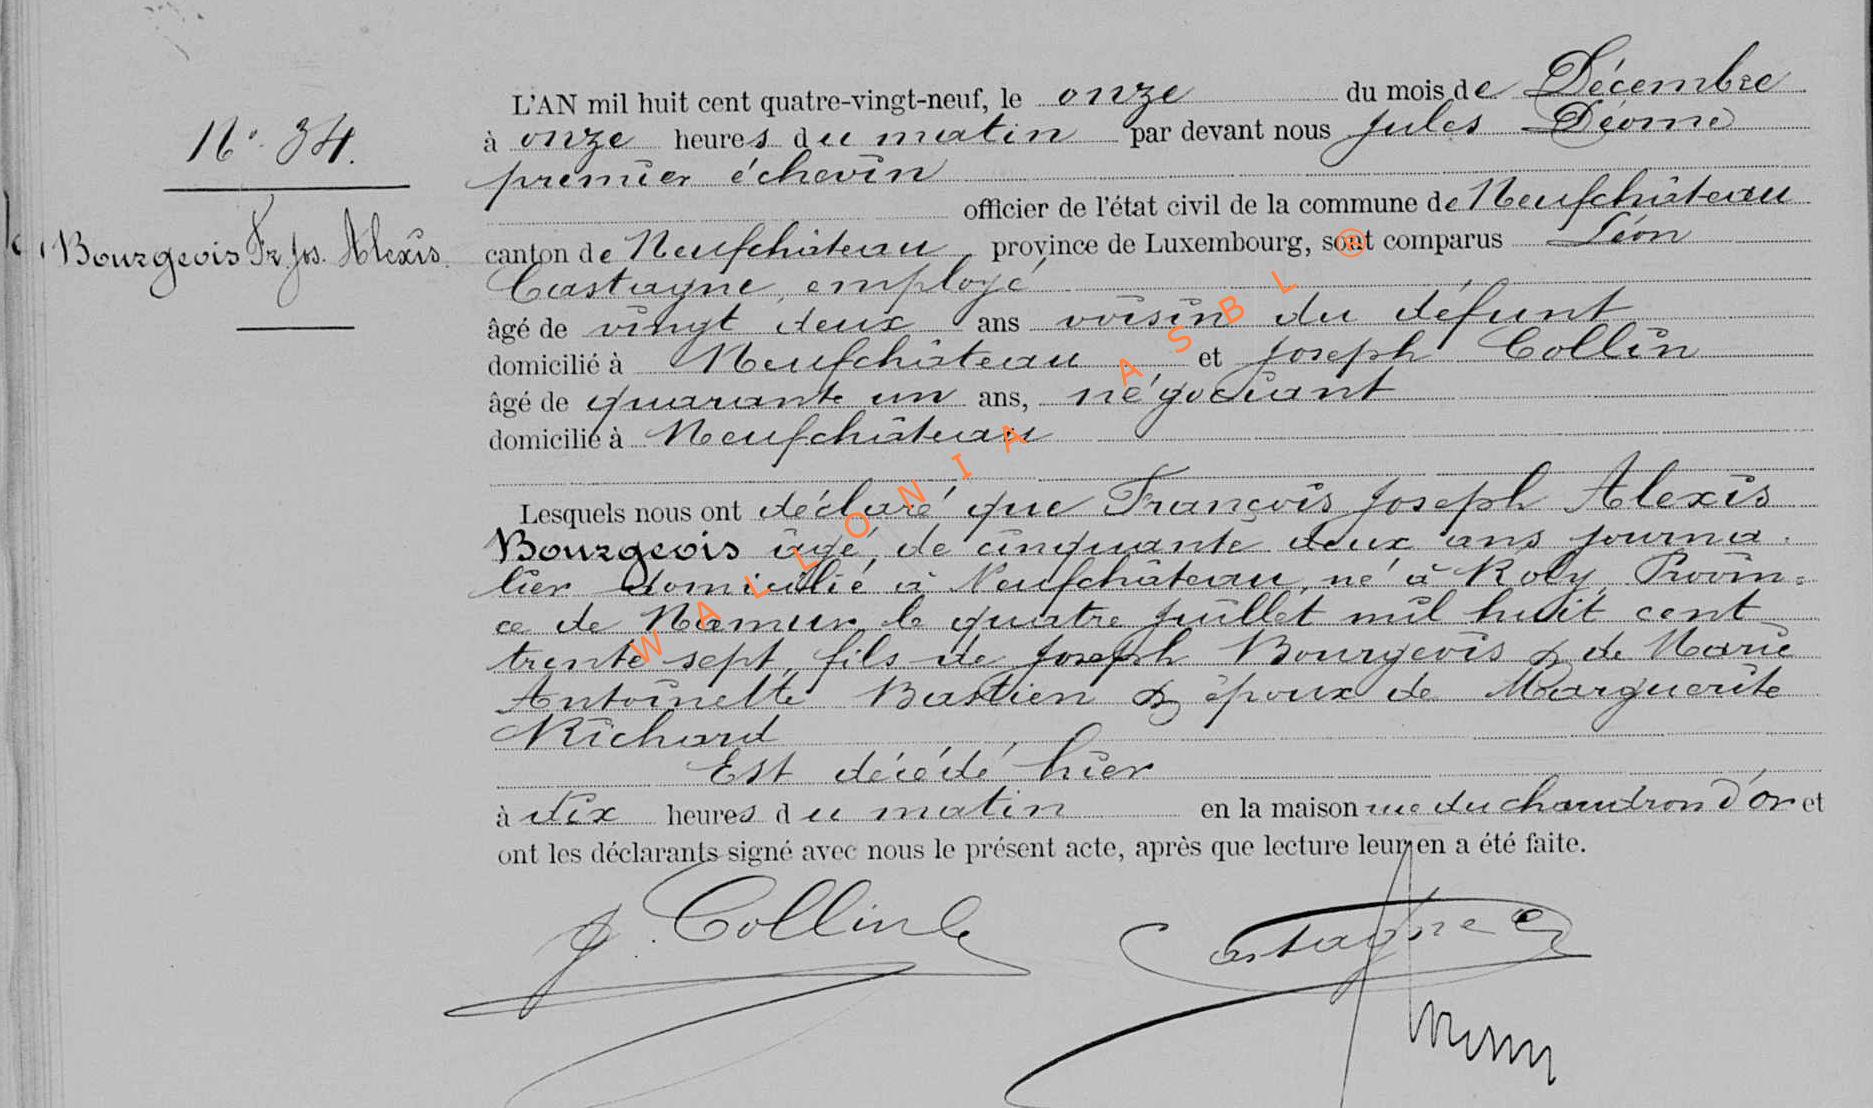 N° 34.
Bourgeois Fr. Jos. Alexis.
L'AN mil huit cent quatre-vingt-neuf, le onze du mois de Décembre
à onze heures du matin par devant nous Jules Déome
premier échevin
officier de l'état civil de la commune de Neufchâteau
canton de Neufchâteau province de Luxembourg, sont comparus Léon
Castagne, employé
âgé de vingt deux ans voisin du défunt
domicilié à Neufchâteau et Joseph Collin
âgé de quarante un ans, négociant
domicilié à Neufchâteau
Lesquels nous ont déclaré que François Joseph Alexis
Bourgeois âgé de cinquante deux ans journa-
lier domicilié à Neufchâteau, né à Roly, Provin=
ce de Namur, le quatre juillet mil huit cent
trente sept, fils de Joseph Bourgeois & de Marie
Antoinette Bastien & époux de Marguerite
Richard
Est décédé hier
à dix heures du matin en la maison rue du chaudron d'or et
ont les déclarants signé avec nous le présent acte, après que lecture leur en a été faite.
J. Collin
Castagne
WALLONIA ASBL ®